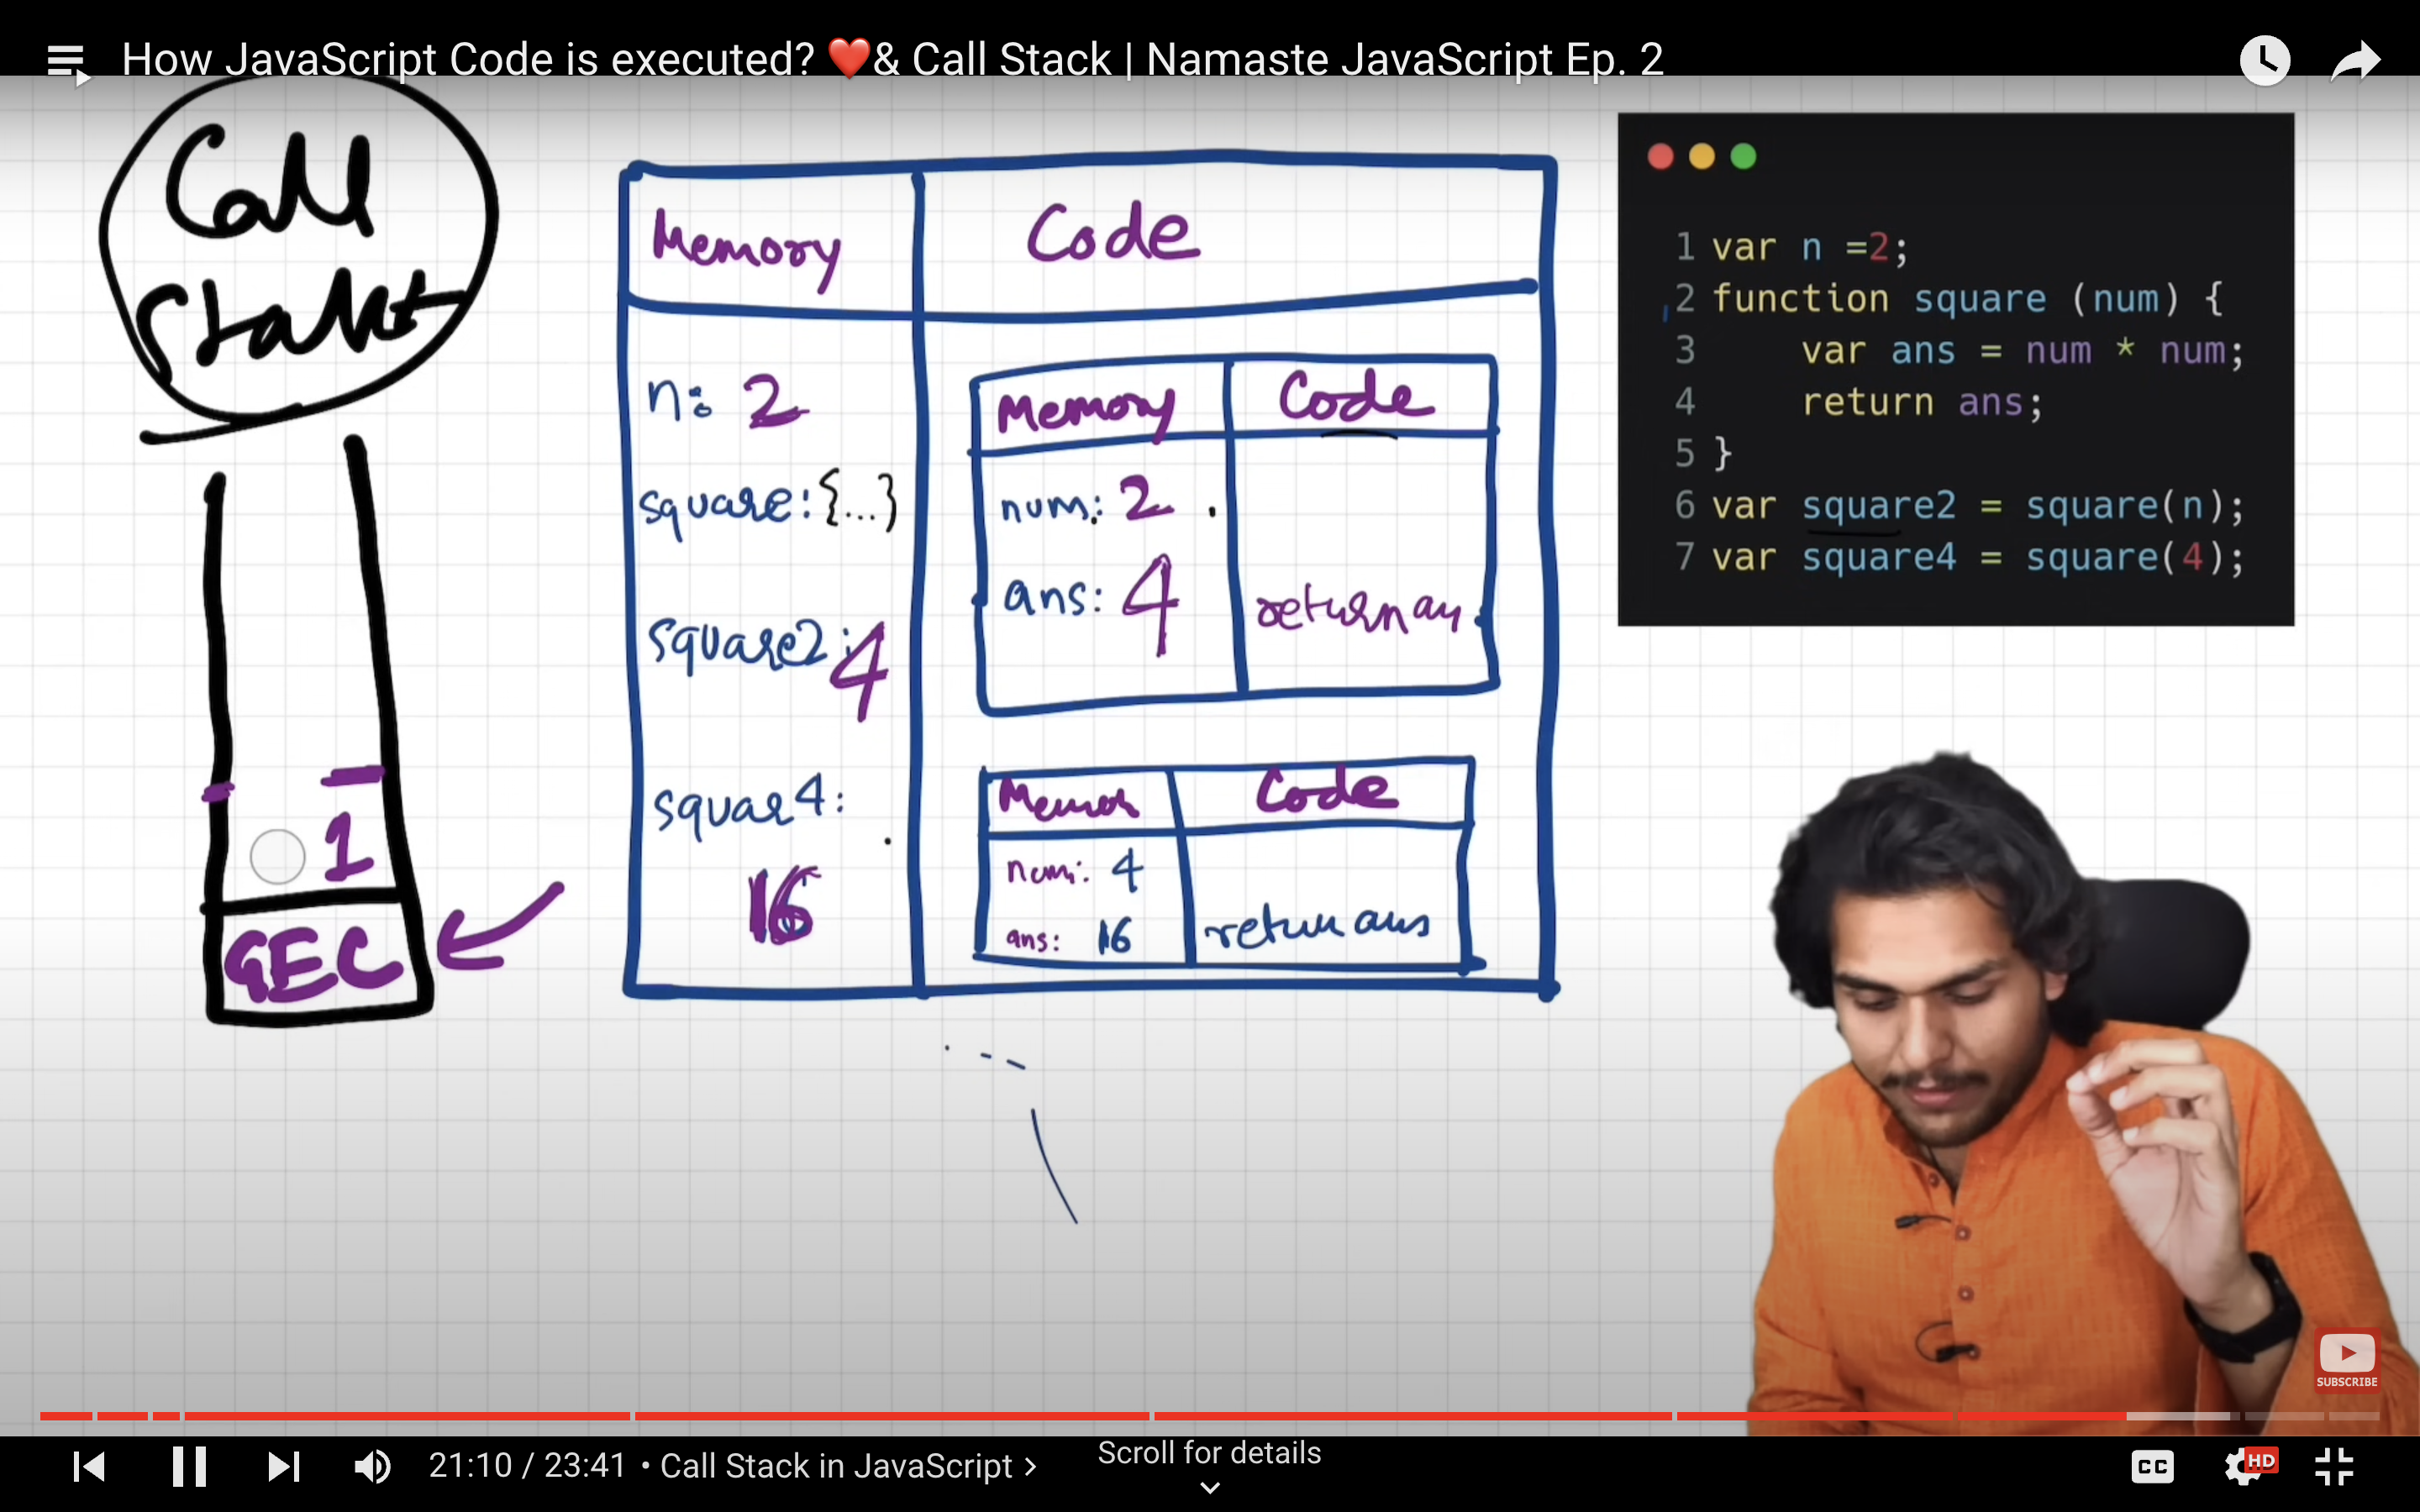 How JavaScript Code is executed? ❤️& Call Stack | Namaste JavaScript Ep. 2
Call
Memory
Code
n: 2
square: {...}
square2: 4
squar4:
16
Memory
Code
num: 2
ans: 4
return an
Code
num: 4
ans: 16
return ans
1
GEC
1 var n =2;
2 function square (num) {
3 var ans = num * num;
4 return ans;
5 }
6 var square2 = square(n);
7 var square4 = square(4);
SUBSCRIBE
21:10 / 23:41 • Call Stack in JavaScript >
Scroll for details
CC
HD